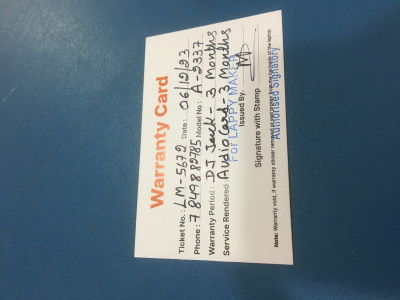 Warranty Card
Ticket No.: LM-5672 Date: 06/12/23
Phone: 7849882785 Model No: A-2337
Warranty Period: DJ Jack - 3 Months
Service Rendered Audiocard - 3 Months
For LAPPY MAKER
Issued By.
Signature with Stamp
Authorised Signatory
Note: Warranty void, if warranty sticker removed